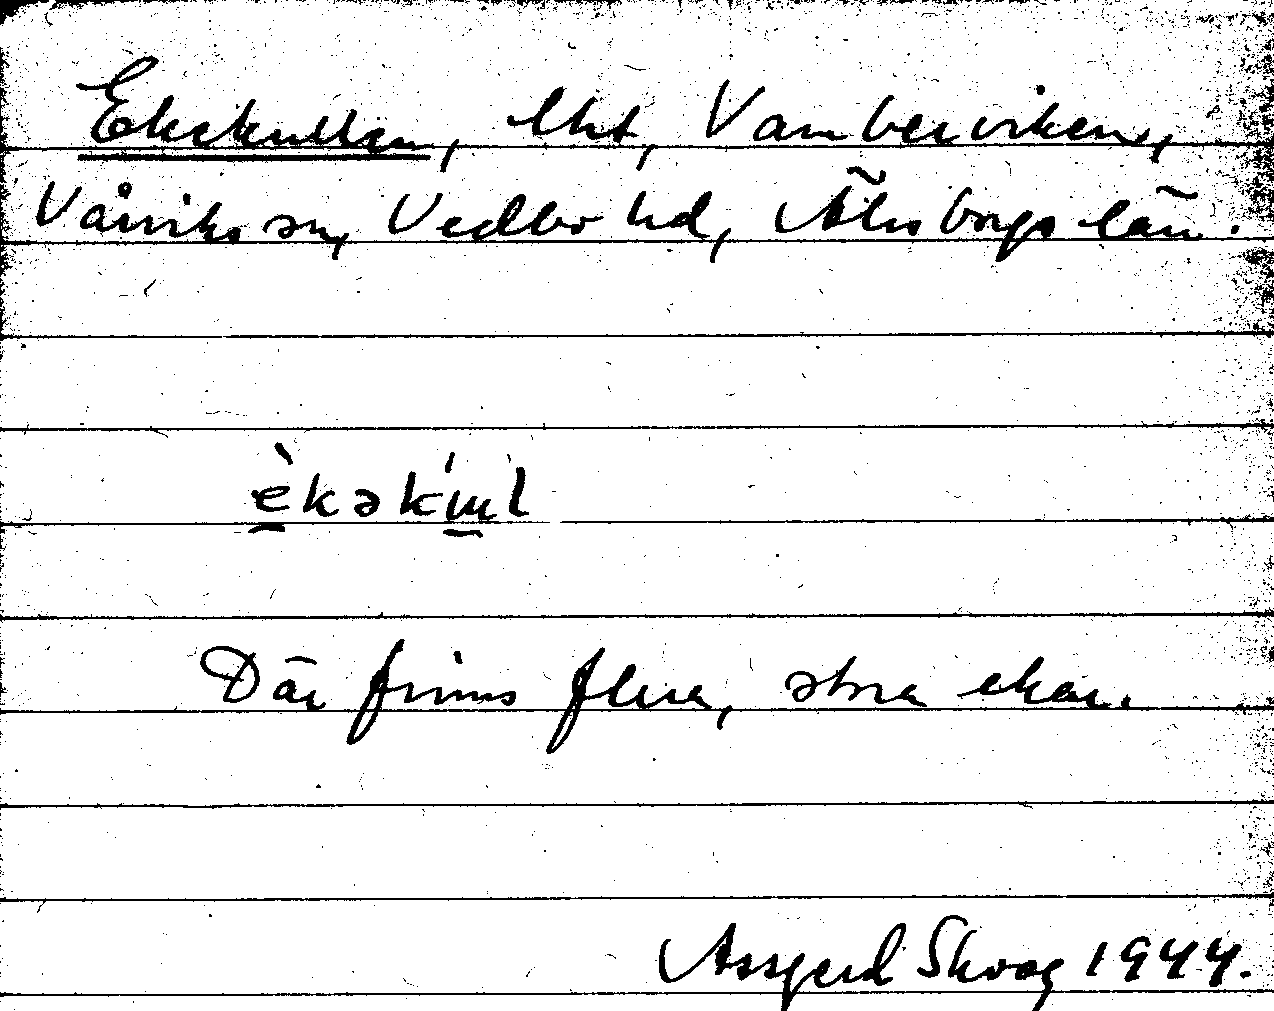 Ekekullen, lht, Vambersviken,
Vårviks sn, Vedbo hd, Älvsborgs län.
èkəkul
Där finns flera, stora ekar.
Assgerd Skoog 1944.